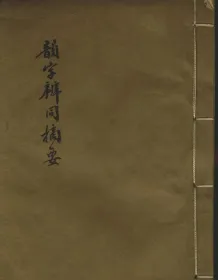 韻字辨同摘要